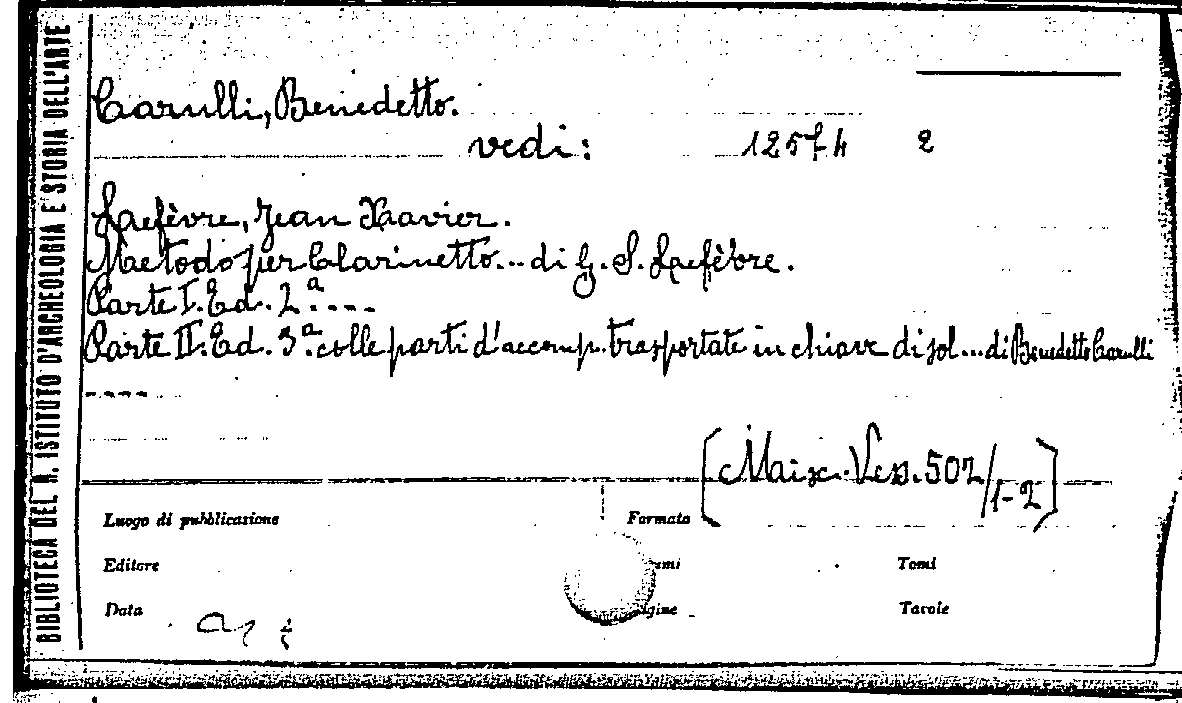 BIBLIOTECA DEL R. ISTITUTO D'ARCHEOLOGIA E STORIA DELL'ARTE
Carulli, Benedetto.
vedi: 12574 2
Lefèvre, Jean Xavier.
Metodo per Clarinetto... di G. S. Lefèvre.
Parte I. Ed. 2ª....
Parte II. Ed. 3ª colle parti d'accomp. trasportate in chiave di sol... di Benedetto Carulli
....
[Misc. Vess. 507/1-2]
Luogo di pubblicazione Formato
Editore Tomi
Data Tavole